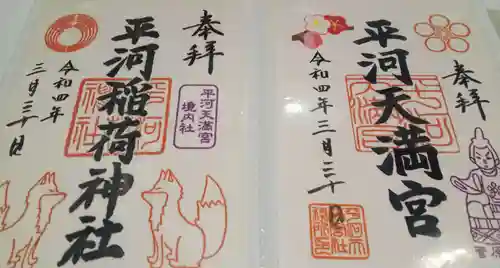 奉拝
平河稲荷神社
平河天満宮
境内社
令和四年
三月三十日
奉拝
平河天満宮
令和四年三月三十日